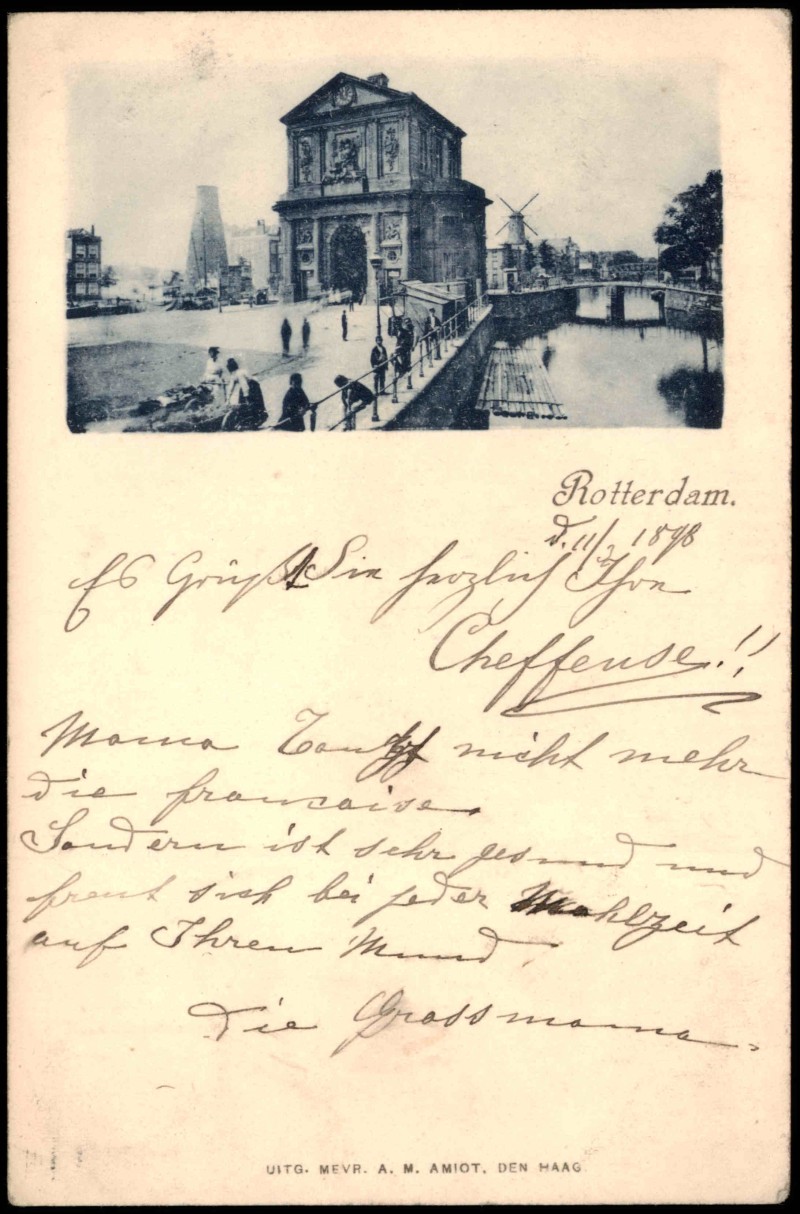 Rotterdam.
d. 11/ 1898
Es Grüßt Sie herzlich Ihre
Cheffeuse!!
Mama Tanzt nicht mehr
die francaise.
Sondern ist sehr gesund und
freut sich bei jeder Mahlzeit
auf Ihren Mund.
Die Grossmama.
UITG. MEVR. A. M. AMIOT, DEN HAAG